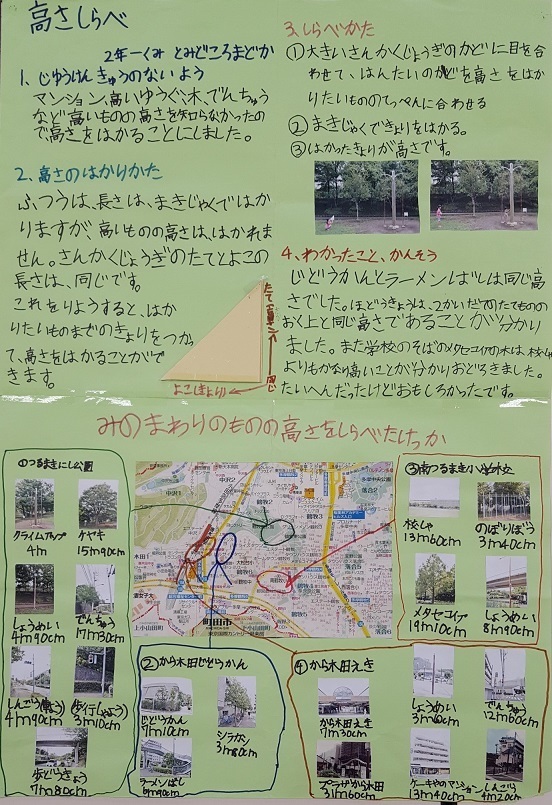 高さしらべ
2年一くみ とみどころまどか
1、じゆうけんきゅうのないよう
マンション、高いゆうぐ、木、でんちゅう
など高いものの高さを知らなかったの
で高さをはかることにしました。
2、高さのはかりかた
ふつうは、長さは、まきじゃくではか
りますが、高いものの高さは、はかれま
せん。さんかくじょうぎのたてとよこの
長さは、同じです。
これをりようすると、はか
りたいものまでのきょりをつかっ
て、高さをはかることがで
きます。
たて(高さ)
同じ
よこ(きょり)
3、しらべかた
①大きいさんかくじょうぎのかどに目を合
わせて、はんたいのかどを高さをはか
りたいもののてっぺんに合わせる
②まきじゃくできょりをはかる。
③はかったきょりが高さです。
4、わかったこと、かんそう
じどうかんとラーメンばしは同じ高
さでした。ほどうきょうは、2かいだてのたてものの
おく上と同じ高さであることが分かり
ました。また学校のそばのメタセコイアの木は、校しゃ
よりもかなり高いことが分かりおどろきました。
たいへんだったけどおもしろかったです。
みのまわりのものの高さをしらべたけっか
①つるまきにし公園
クライムアップ
4m
ケヤキ
15m90cm
しょうめい
4m90cm
でんちゅう
17m30cm
しんごう(車よう)
4m90cm
歩行しゃよう
3m10cm
歩どうきょう
7m80cm
町田市
②から木田じどうかん
じどうかん
7m10cm
シラカシ
3m80cm
ラーメンばし
6m90cm
③南つるまき小学校
校しゃ
13m60cm
のぼりぼう
3m40cm
メタセコイア
19m10cm
しょうめい
8m90cm
④から木田えき
から木田えき
7m30cm
しょうめい
3m60cm
でんちゅう
12m60cm
プラザから木田
31m60cm
ケーキやのマンション
13m40cm
しんごう
4m20cm